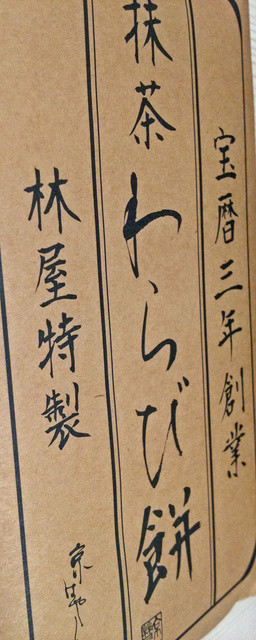 宝暦三年創業
抹茶わらび餅
林屋特製